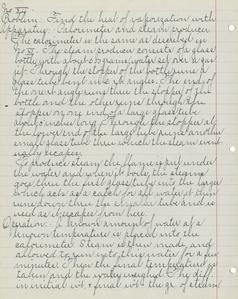 No. XVI.
Problem. Find the heat of vaporization with
Apparatus: Calorimeter and steam producer.
The calorimeter is the same as described in
No. XV. The steam producer consists of a glass
bottle with about 250 grams water set over a gas
jet. Through the stopper of the bottle runs a
glass tube bent in a rt. angle. The end of
the right angle runs thru the stopper of the
bottle and the other runs through the
stopper on one end of a large glass tube
about inches long. Through the stopper at
the lower end of the large tube runs another
small glass tube thru which the steam event-
ually escapes.
To produce steam the flame is put under
the water and when it boils, the steam
goes thru the small glass tube into the larger
which acts as a catch for all water that
runs down thru the smaller tube and is
used as it escapes from here.
Operation: A known amount of water at a
known temperature is placed into the
calorimeter. Steam is then made, and
allowed to run into the water for a few
minutes. Then the final temperature is
taken and the water weighed. The diff.
in initial wt. & final wt. = the gr. of steam